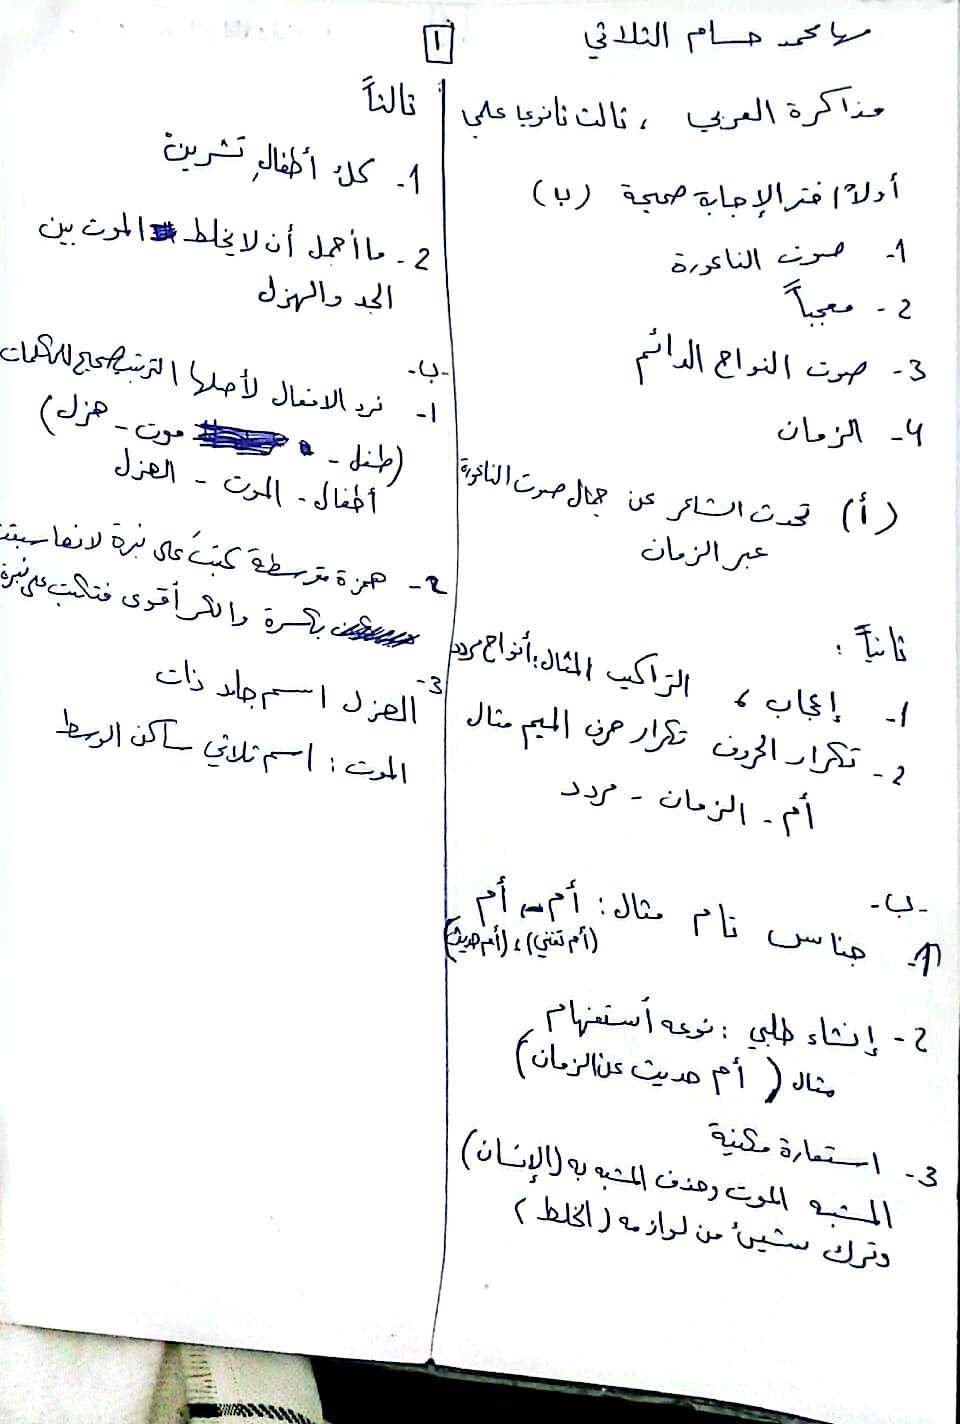 مها محمد حسام الثلاثي
1
مذاكرة العربي ، ثالث ثانوي علمي
أولاً اختر الإجابة صحيحة (ب)
1- صوت الناعورة
2- معجباً
3- صوت النواح الدائم
4- الزمان
(أ) تحدث الشاعر عن جمال صوت الناعورة
عبر الزمان
ثانياً :
1- إعجاب ، التراكيب المثال: أنواح مردد
2- تكرار الحروف تكرار حرف الميم مثال
أم - الزمان - مردد
-ب-
1- جناس تام مثال: أم - أم
(أم تغني) ، (أم حديث)
2- إنشاء طلبي : نوعه أستفهام
مثال ( أم حديث عن الزمان)
3- استعارة مكنية
المشبه الموت وحذف المشبه به (الإنسان)
وترك شيئ من لوازمه (الخلط)
ثالثاً
1- كلُ أطفالِ تشرينْ
2- ما أجمل أن لا يخلط الموت بين
الجد والهزل
-ب-
1- نرد الافعال لأصلها الترتيب صحيح للكلمات
(طفل - موت - هزل)
أطفال - الموت - الهزل
2- همزة متوسطة كتبت على نبرة لانها سبقت
بكسرة والكسر أقوى فتكتب على نبرة
3- الهزل اسم جامد ذات
الموت : اسم ثلاثي ساكن الوسط